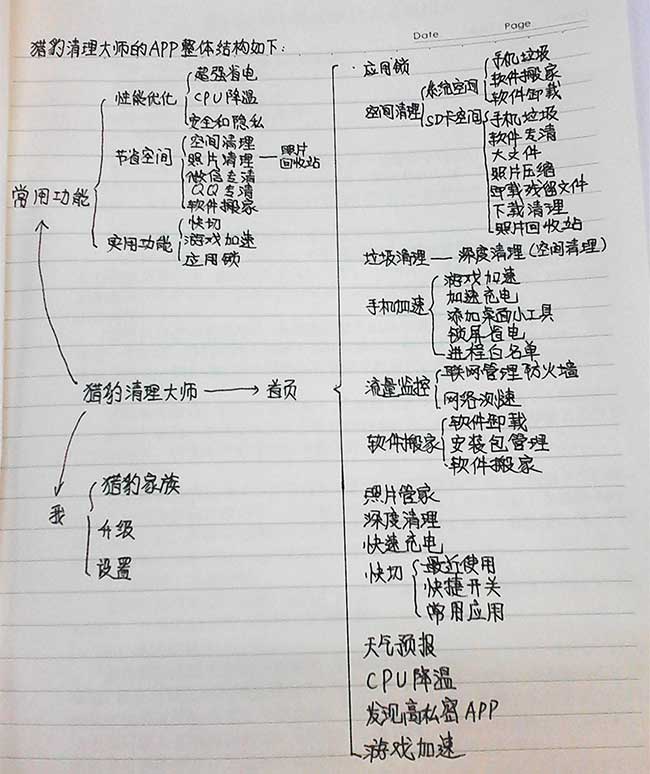 Date
Page
猎豹清理大师的APP整体结构如下:
常用功能
性能优化
超强省电
CPU降温
安全和隐私
节省空间
空间清理
照片清理——照片回收站
微信专清
QQ专清
软件搬家
实用功能
快切
游戏加速
应用锁
猎豹清理大师
首页
我
猎豹家族
升级
设置
应用锁
空间清理
系统空间
手机垃圾
软件搬家
软件卸载
SD卡空间
手机垃圾
软件专清
大文件
照片压缩
卸载残留文件
下载清理
照片回收站
垃圾清理——深度清理(空间清理)
手机加速
游戏加速
加速充电
添加桌面小工具
锁屏省电
进程白名单
流量监控
联网管理防火墙
网络测速
软件搬家
软件卸载
安装包管理
软件搬家
照片管家
深度清理
快速充电
快切
最近使用
快捷开关
常用应用
天气预报
CPU降温
发现高私密APP
游戏加速